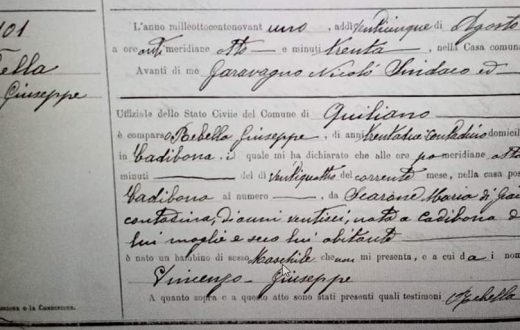 101
ella
Giuseppe
L'anno milleottocentonovant uno, addì venticinque di Agosto
a ore anti meridiane otto e minuti trenta, nella Casa comuna
Avanti di me Garavagno Nicolò Sindaco ed
Uffiziale dello Stato Civile del Comune di Quiliano
è comparso Rebella Giuseppe, di anni trentadue contadino domicili
in Cadibona, il quale mi ha dichiarato che alle ore po meridiane otto
minuti — del dì ventiquattro del corrente mese, nella casa po
Cadibona al numero —, da Scarone Maria di
contadina, di anni ventisei, nata a Cadibona
lui moglie e seco lui abitante
è nato un bambino di sesso Maschile che non mi presenta, e a cui da i nom
Vincenzo - Giuseppe
A quanto sopra e a questo atto sono stati presenti quali testimoni Rebella
e la Condizione.